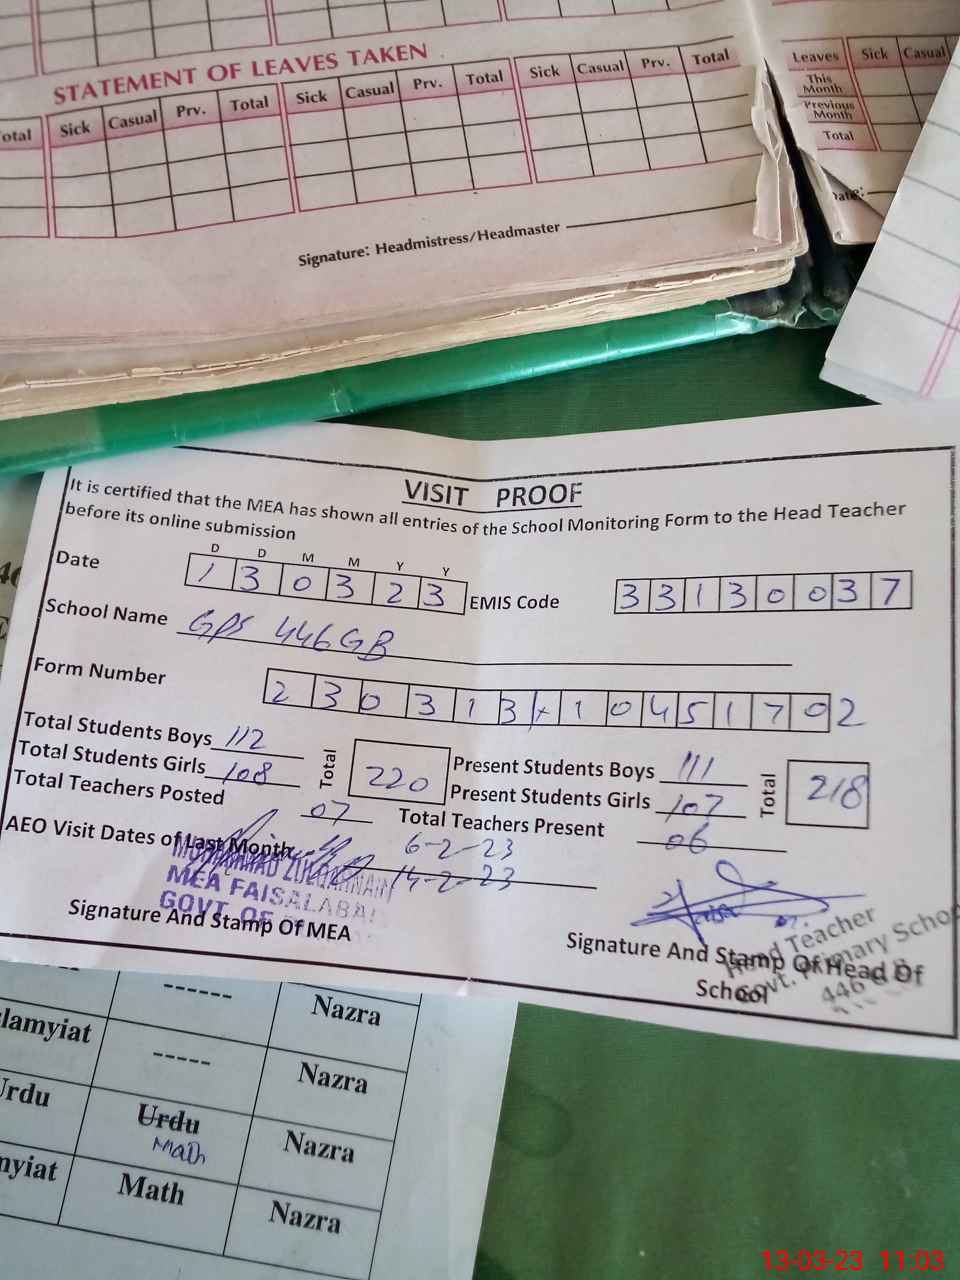 STATEMENT OF LEAVES TAKEN
otal Sick Casual Prv. Total Sick Casual Prv. Total Sick Casual Prv. Total
Signature: Headmistress/Headmaster
Leaves Sick Casual
This Month
Previous Month
Total
Date:
VISIT PROOF
It is certified that the MEA has shown all entries of the School Monitoring Form to the Head Teacher
before its online submission
D D M M Y Y
Date 1 3 0 3 2 3 EMIS Code 3 3 1 3 0 0 3 7
School Name GPS 446 GB
Form Number 2 3 0 3 1 3 x 1 0 4 5 1 7 0 2
Total Students Boys 112 Total 220 Present Students Boys 111 Total 218
Total Students Girls 108 Present Students Girls 107
Total Teachers Posted 07 Total Teachers Present 06
AEO Visit Dates of Last Month 6-2-23
14-2-23
MUHAMMAD ZULQARNAIN
MEA FAISALABAD
GOVT. OF
Signature And Stamp Of MEA
Signature And Stamp Of Head Of
School
Head Teacher
Govt. Primary School
446
Nazra
lamyiat ----- Nazra
Urdu Urdu Nazra
Math
myiat Math Nazra
13-03-23 11:03